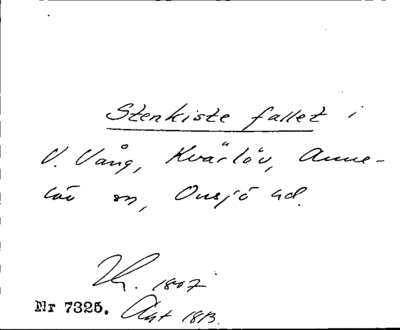 Stenkiste fallet i
V. Vång, Kvärlöv, Anne-
löv sn, Onsjö hd.
1847
Nr 7325. Akt 1813.